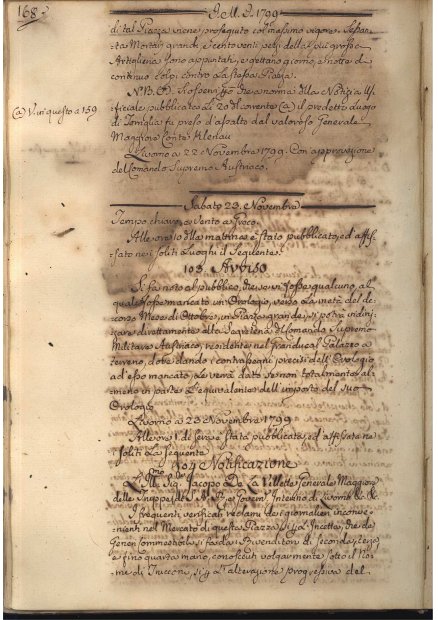 168.
J. M. J. 1799
di tal Piazza viene proseguito col massimo vigore. Sessan-
ta Mortari grandi, e cento venti pezzi della più grossa
Artiglieria sono appuntati, e gettano giorno, e notte di
continuo colpi contro la stessa Piazza.
N.B. a norma della Notizia Uf-
ficiale pubblicata li 20 del corrente (a) il predetto luogo
(a) Vedi questo a 159
di fu preso d'assalto dal valoroso Generale
Maggiore Conte Klenau
Livorno a 22 Novembre 1799. Con approvazione
del Comando Supremo Austriaco.
Sabato 23. Novembre
Tempo chiaro, e Vento a
Alle ore 10 della mattina è stato pubblicato, ed affis-
sato nei soliti Luoghi il Seguente
103. Avviso
Si fa noto al pubblico, che se vi fosse qualcuno, al
quale fosse mancato un Orologio, verso la metà del de-
corso Mese di Ottobre, in Piazza grande, si potrà indiriz-
zare direttamente alla Segreteria del Comando Supremo
Militare Austriaco, residente nel Granducal Palazzo a
terreno, dove dando i contrassegni precisi dell'Orologio
ad esso mancato, le verrà dato se non totalmente al-
meno in parte l'equivalente dell'importo del suo
Orologio
Livorno a 23 Novembre 1799
Alle ore 1. di sera è stata pubblicata, ed affissata ne
soliti la seguente
104 Notificazione
Sig. Jacopo De Lavillette, Generale Maggiore
delle Truppe di S. A. R. e Govern. Interino di Livorno &c. &c.
I frequenti verificati reclami dei giornalieri inconve-
nienti nel Mercato di questa Piazza sì la Incetta, che da
Generi commestibili si fa dai Rivenditori di seconda, terza
e fino quarta mano, conosciuti volgarmente sotto il No-
me di Treccone, sì la alterazione progressiva del